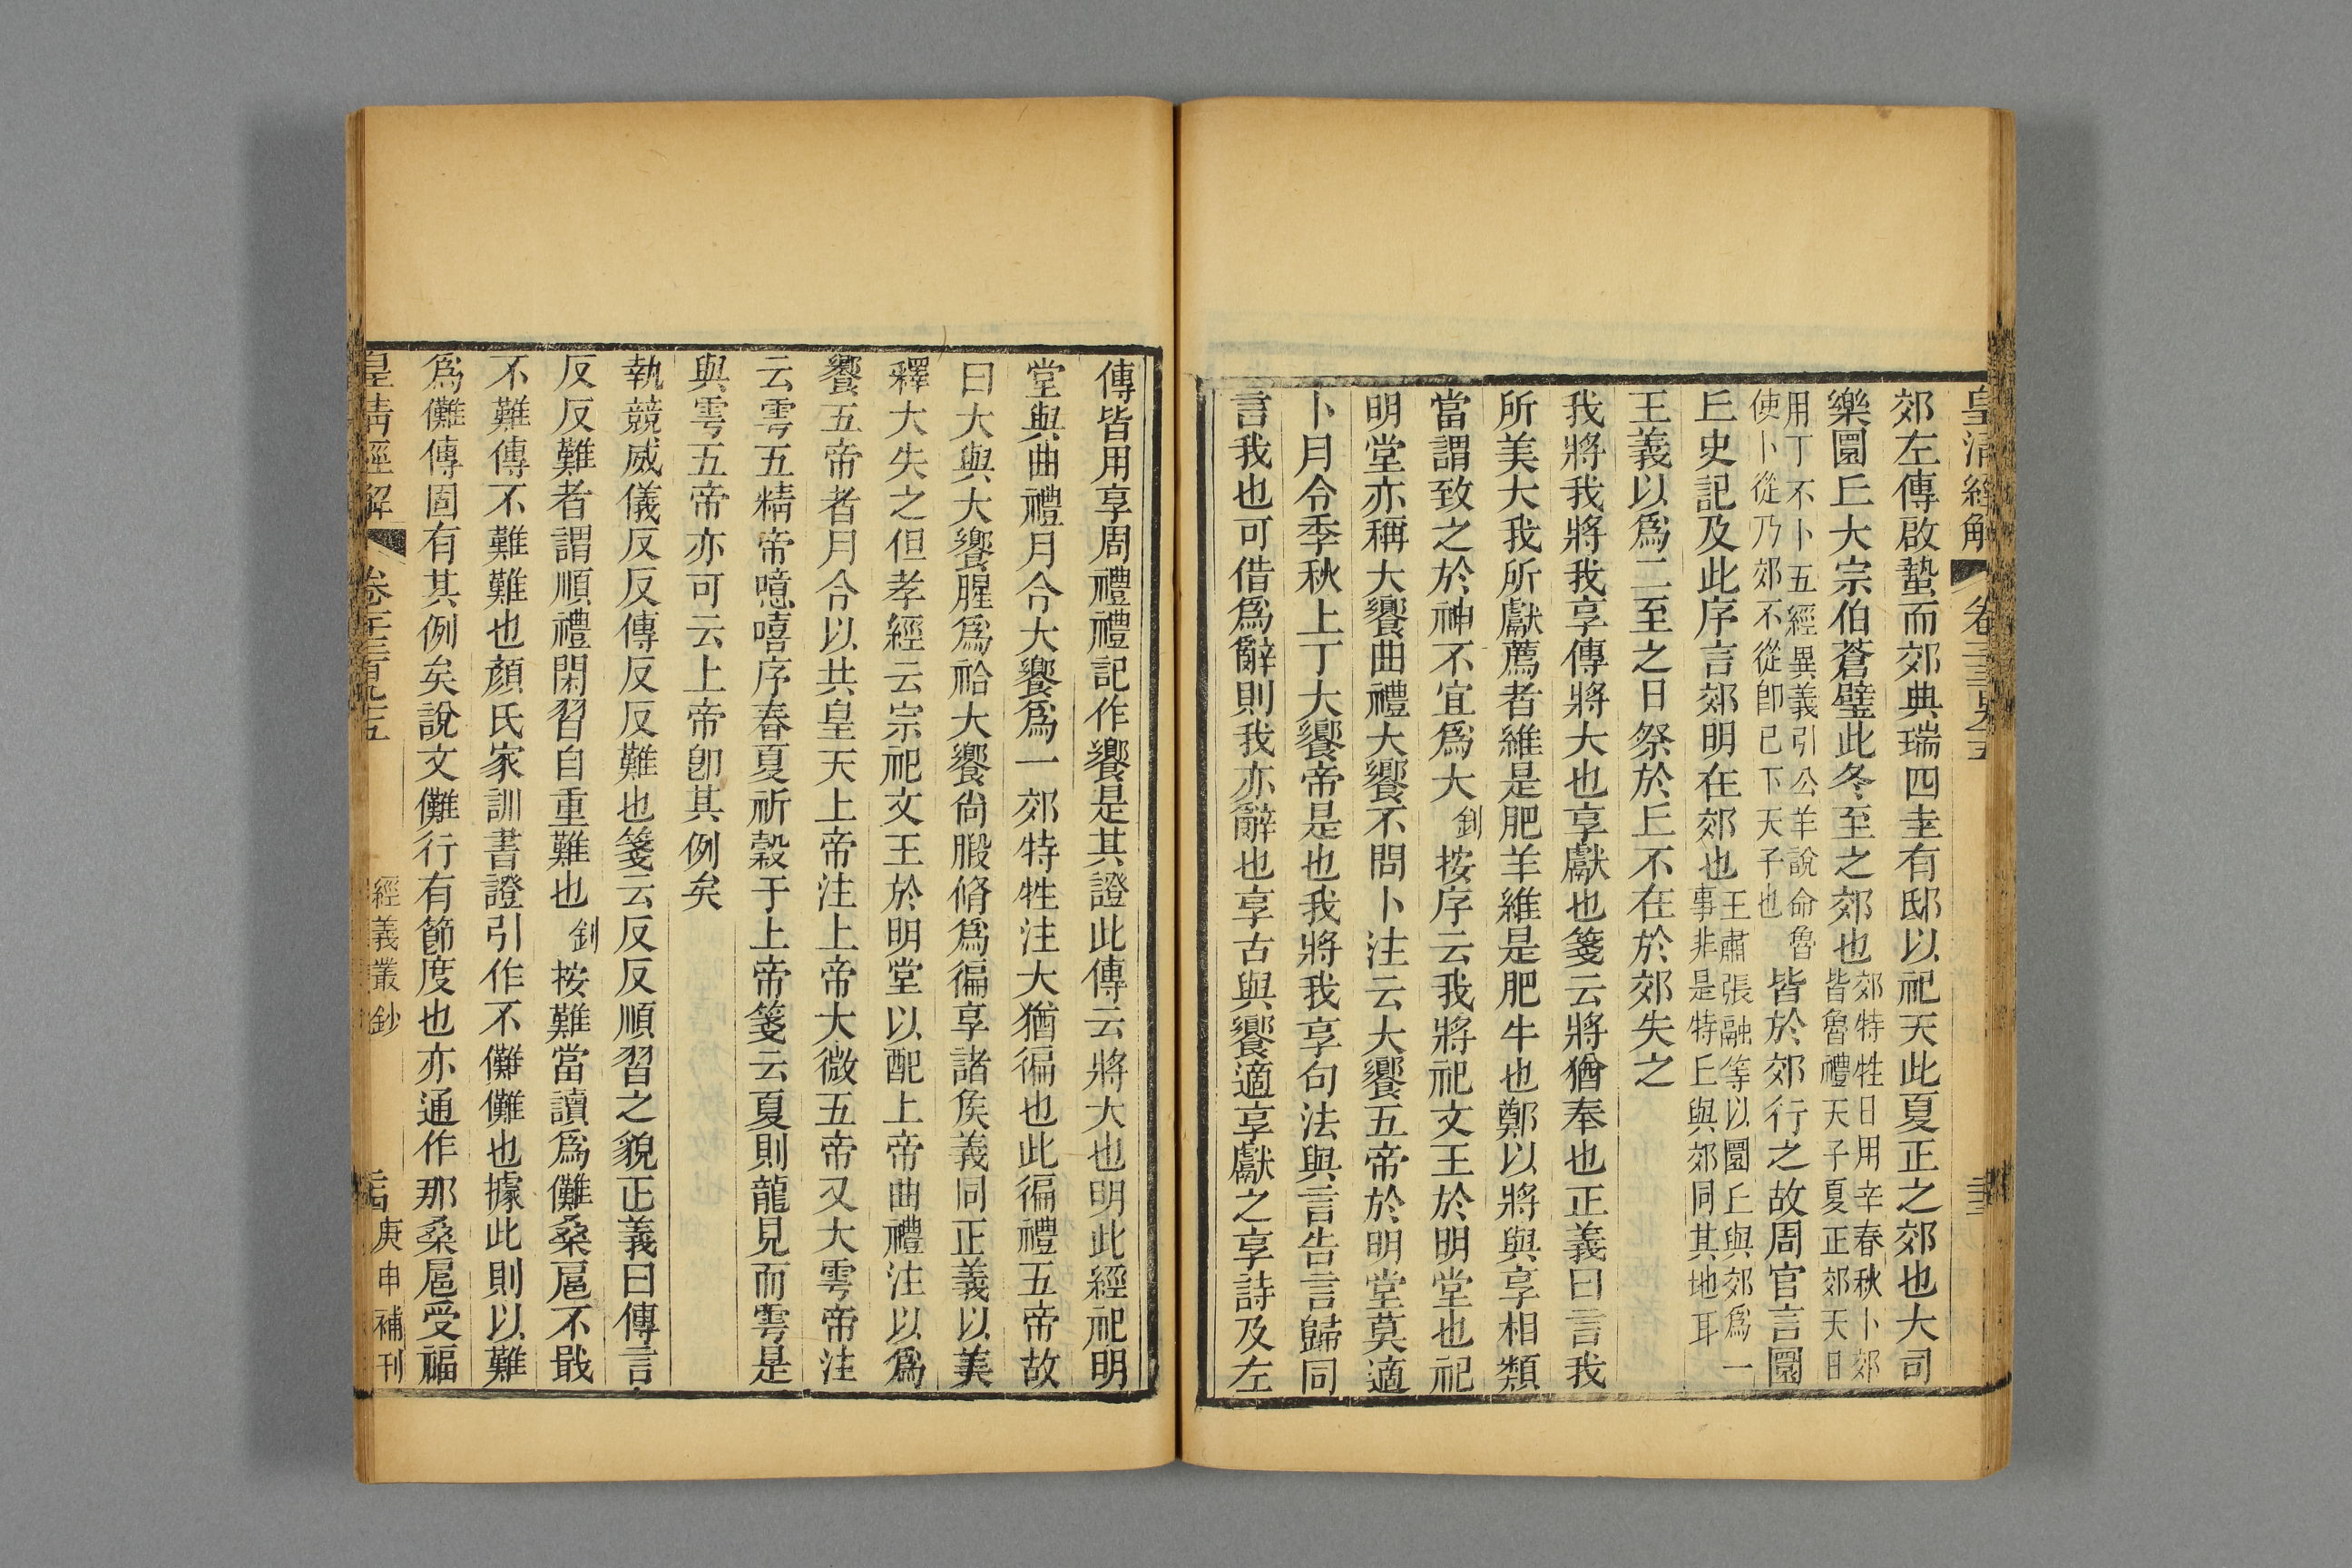 皇清經解 卷
郊左傳啟蟄而郊典瑞四圭有邸以祀天此夏正之郊也大司
樂圜丘大宗伯蒼璧此冬至之郊也郊特牲日用辛春秋卜郊皆魯禮天子夏正郊天日
用丁不卜五經異義引公羊說命魯使卜從乃郊不從卽已下天子也皆於郊行之故周官言圜
丘史記及此序言郊明在郊也王肅張融等以圜丘與郊爲一事非是特丘與郊同其地耳
王義以爲二至之日祭於丘不在於郊失之
我將我將我享傳將大也享獻也箋云將猶奉也正義曰言我
所美大我所獻薦者維是肥羊維是肥牛也鄭以將與享相類
當謂致之於神不宜爲大釗按序云我將祀文王於明堂也祀
明堂亦稱大饗曲禮大饗不問卜注云大饗五帝於明堂莫適
卜月令季秋上丁大饗帝是也我將我享句法與言告言歸同
言我也可借爲辭則我亦辭也享古與饗適享獻之享詩及左
傳皆用享周禮禮記作饗是其證此傳云將大也明此經祀明
堂與曲禮月令大饗爲一郊特牲注大猶徧也此徧禮五帝故
曰大與大饗腥爲祫大饗尙腶脩爲徧享諸矦義同正義以美
釋大失之但孝經云宗祀文王於明堂以配上帝曲禮注以爲
饗五帝者月令以共皇天上帝注上帝大微五帝又大雩帝注
云雩五精帝噫嘻序春夏祈穀于上帝箋云夏則龍見而雩是
與雩五帝亦可云上帝卽其例矣
執競威儀反反傳反反難也箋云反反順習之貌正義曰傳言
反反難者謂順禮閑習自重難也釗按難當讀爲儺桑扈不戢
不難傳不難難也顏氏家訓書證引作不儺儺也據此則以難
爲儺傳固有其例矣說文儺行有節度也亦通作那桑扈受福
皇清經解 卷 經義叢鈔 庚申補刊